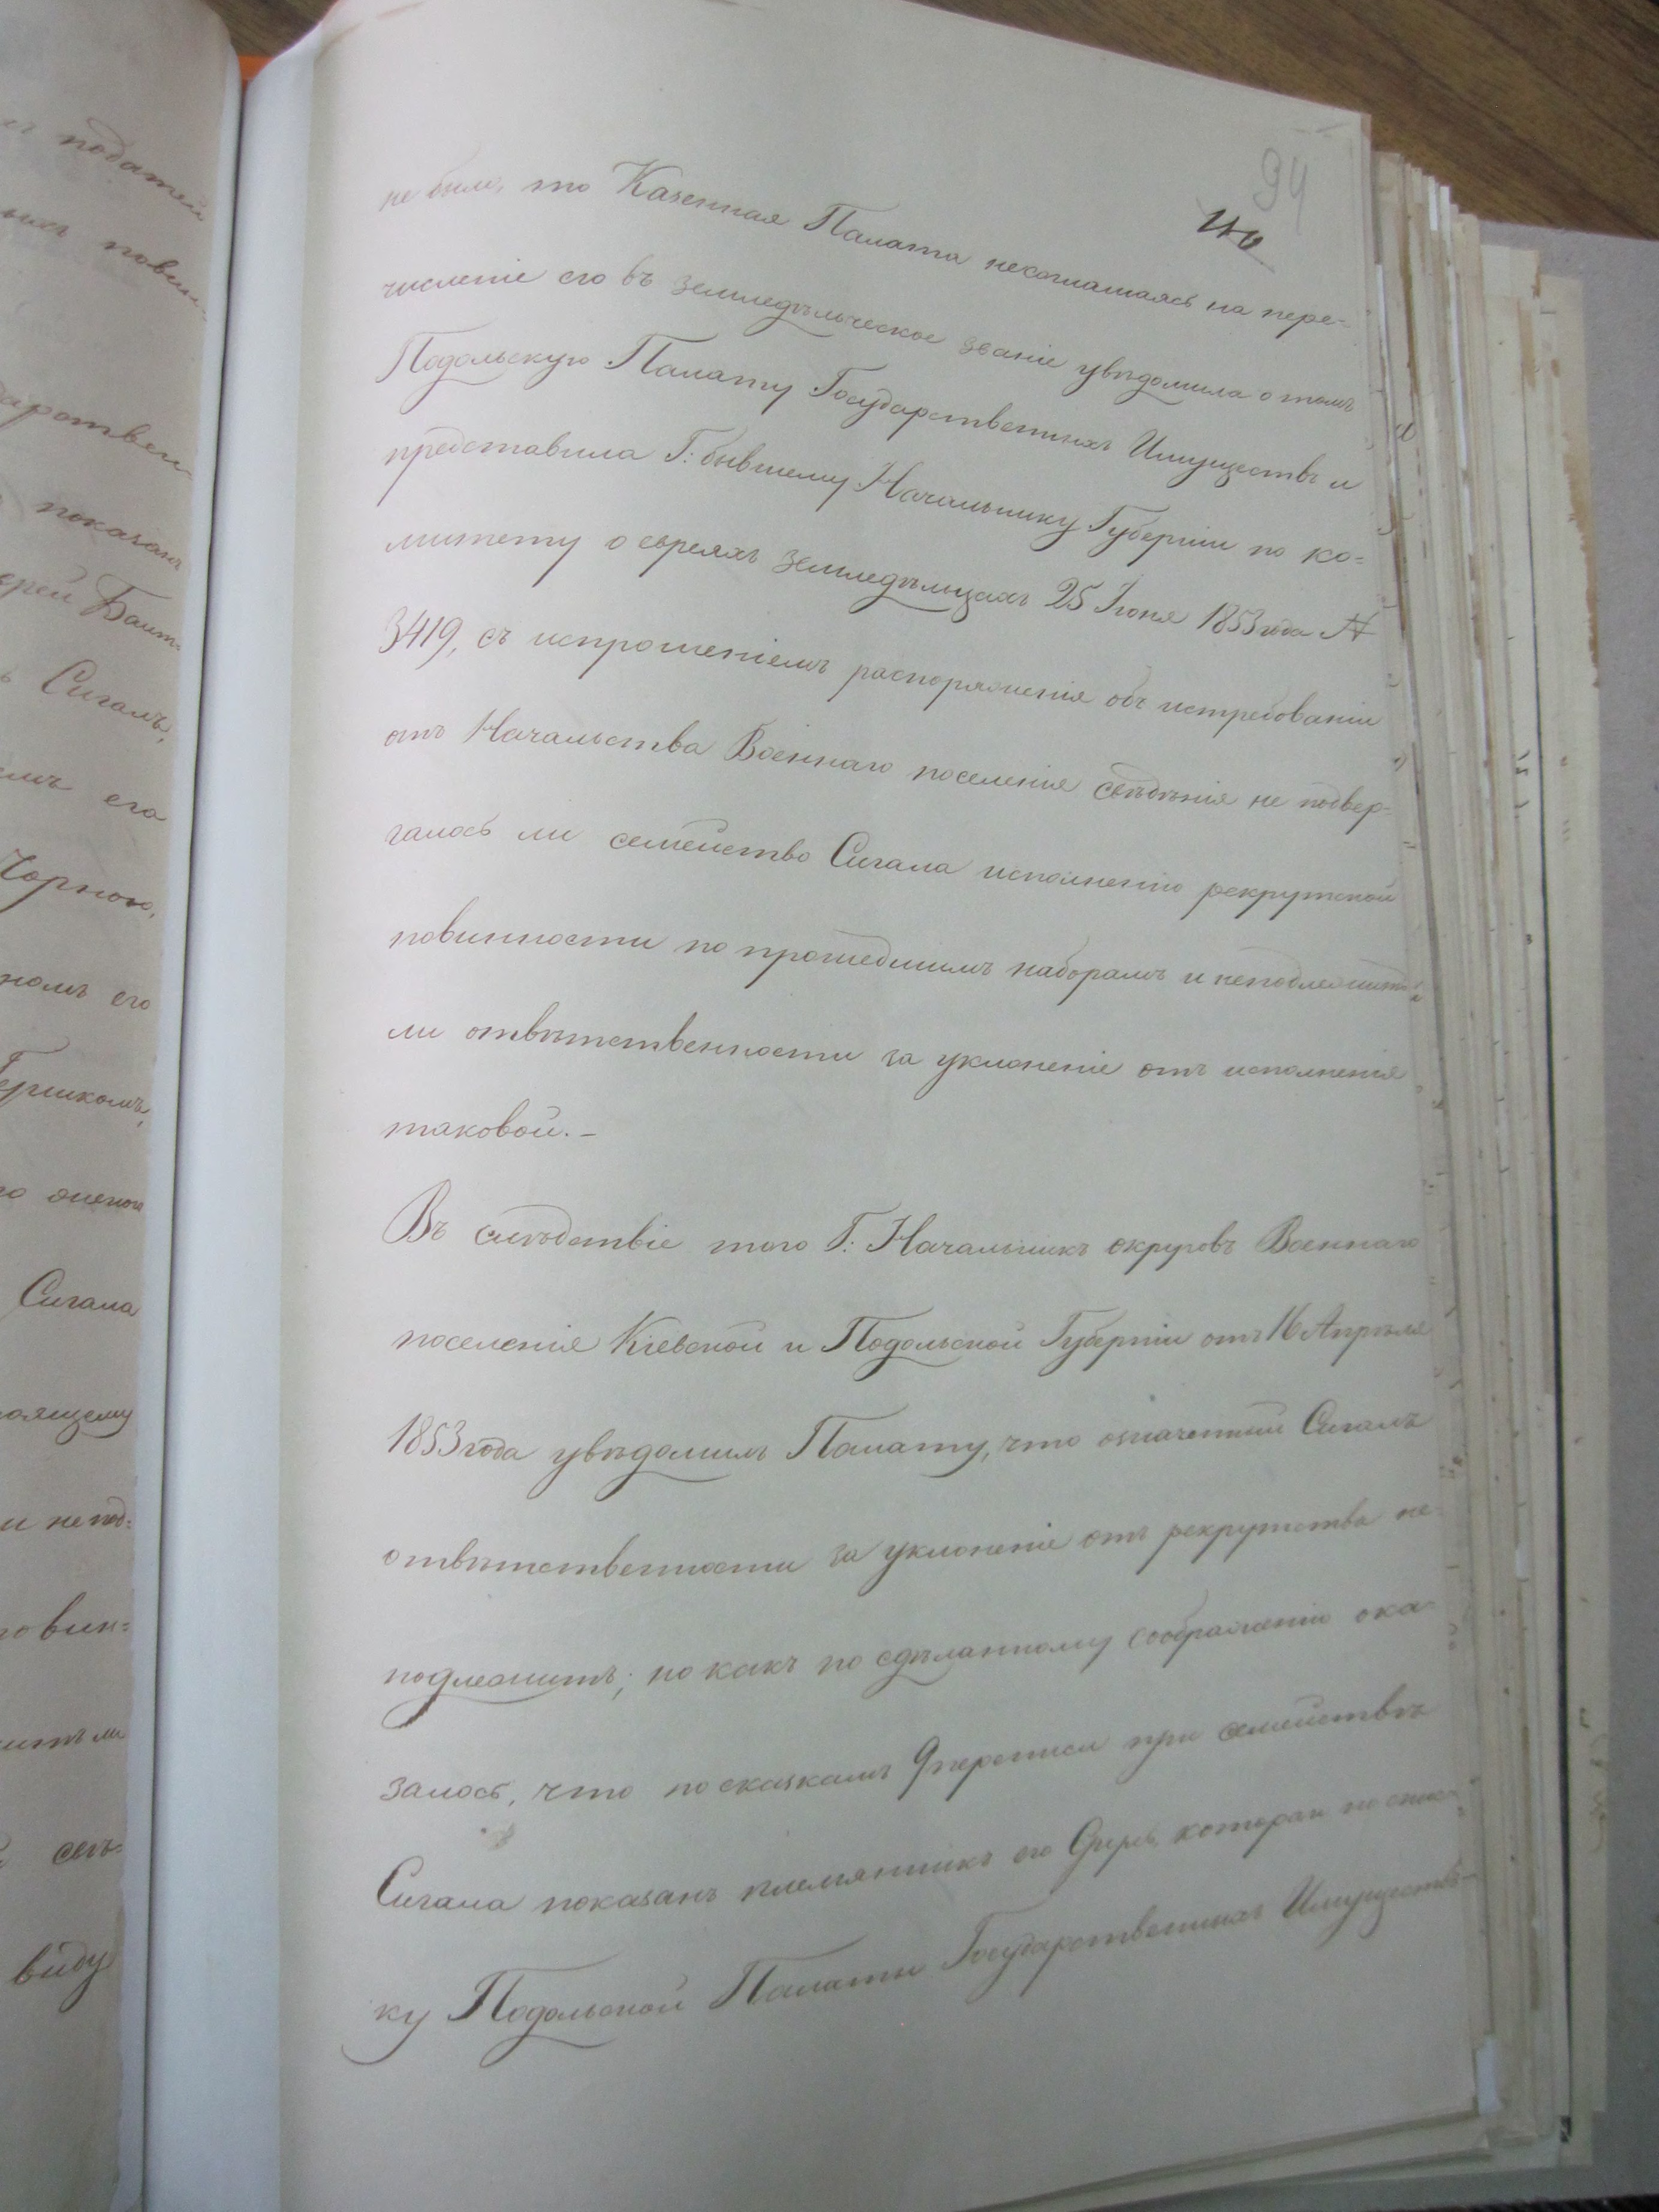 94
не было, то Казенная Палата несоглашаясь на пере-
численіе его въ земледѣльческое званіе увѣдомила о томъ
Подольскую Палату Государственныхъ Имуществъ и
представила Г: бывшему Начальнику Губерніи по ко=
митету о евреяхъ земледѣльцахъ 25 Іюня 1853 года №
3419, съ испрошеніемъ распоряженія объ истребованіи
отъ Начальства Военнаго поселенія свѣдѣнія не подвер-
галось ли семейство Сигала исполненію рекрутской
повинности по прошедшимъ наборамъ и неподлежитъ
ли отвѣтственности за уклоненіе отъ исполненія
таковой.—
Въ слѣдствіе того Г: Начальникъ округовъ Военнаго
поселенія Кіевской и Подольской Губерніи отъ 16 Апрѣля
1853 года увѣдомилъ Палату, что означенный Сигалъ
отвѣтственности за уклоненіе отъ рекрутства не-
подлежитъ; но какъ по сдѣланному соображенію ока-
залось, что по сказкамъ 9 переписи при семействѣ
Сигала показанъ племянникъ его которая по спис-
ку Подольской Палаты Государственныхъ Имуществъ
податей
показанъ
Сигалъ,
его
Чорною,
его
Гершкомъ,
Сигала
и не под=
виду